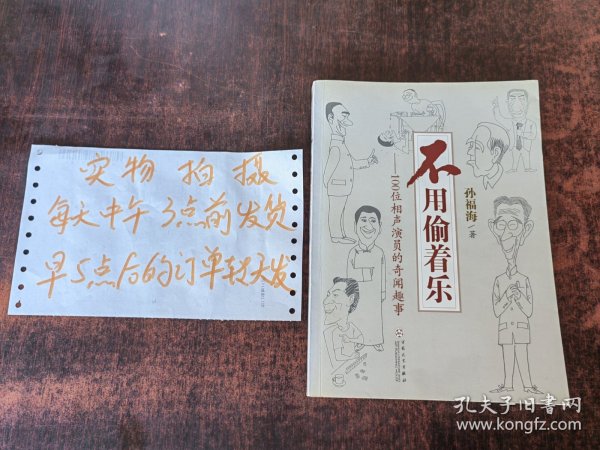 实物拍摄
每天中午3点前发货
早5点后的订单转天发
不用偷着乐
——100位相声演员的奇闻趣事
孙福海/著
百花文艺出版社
孔夫子旧书网
www.kongfz.com